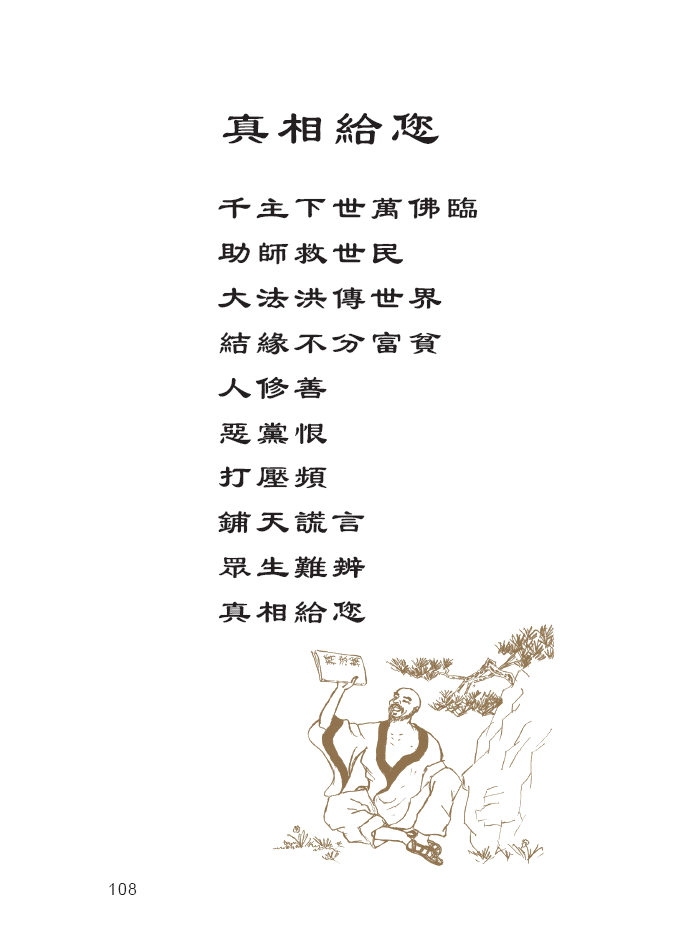 真相給您
千主下世萬佛臨
助師救世民
大法洪傳世界
結緣不分富貧
人修善
惡黨恨
打壓頻
鋪天謊言
眾生難辨
真相給您
108